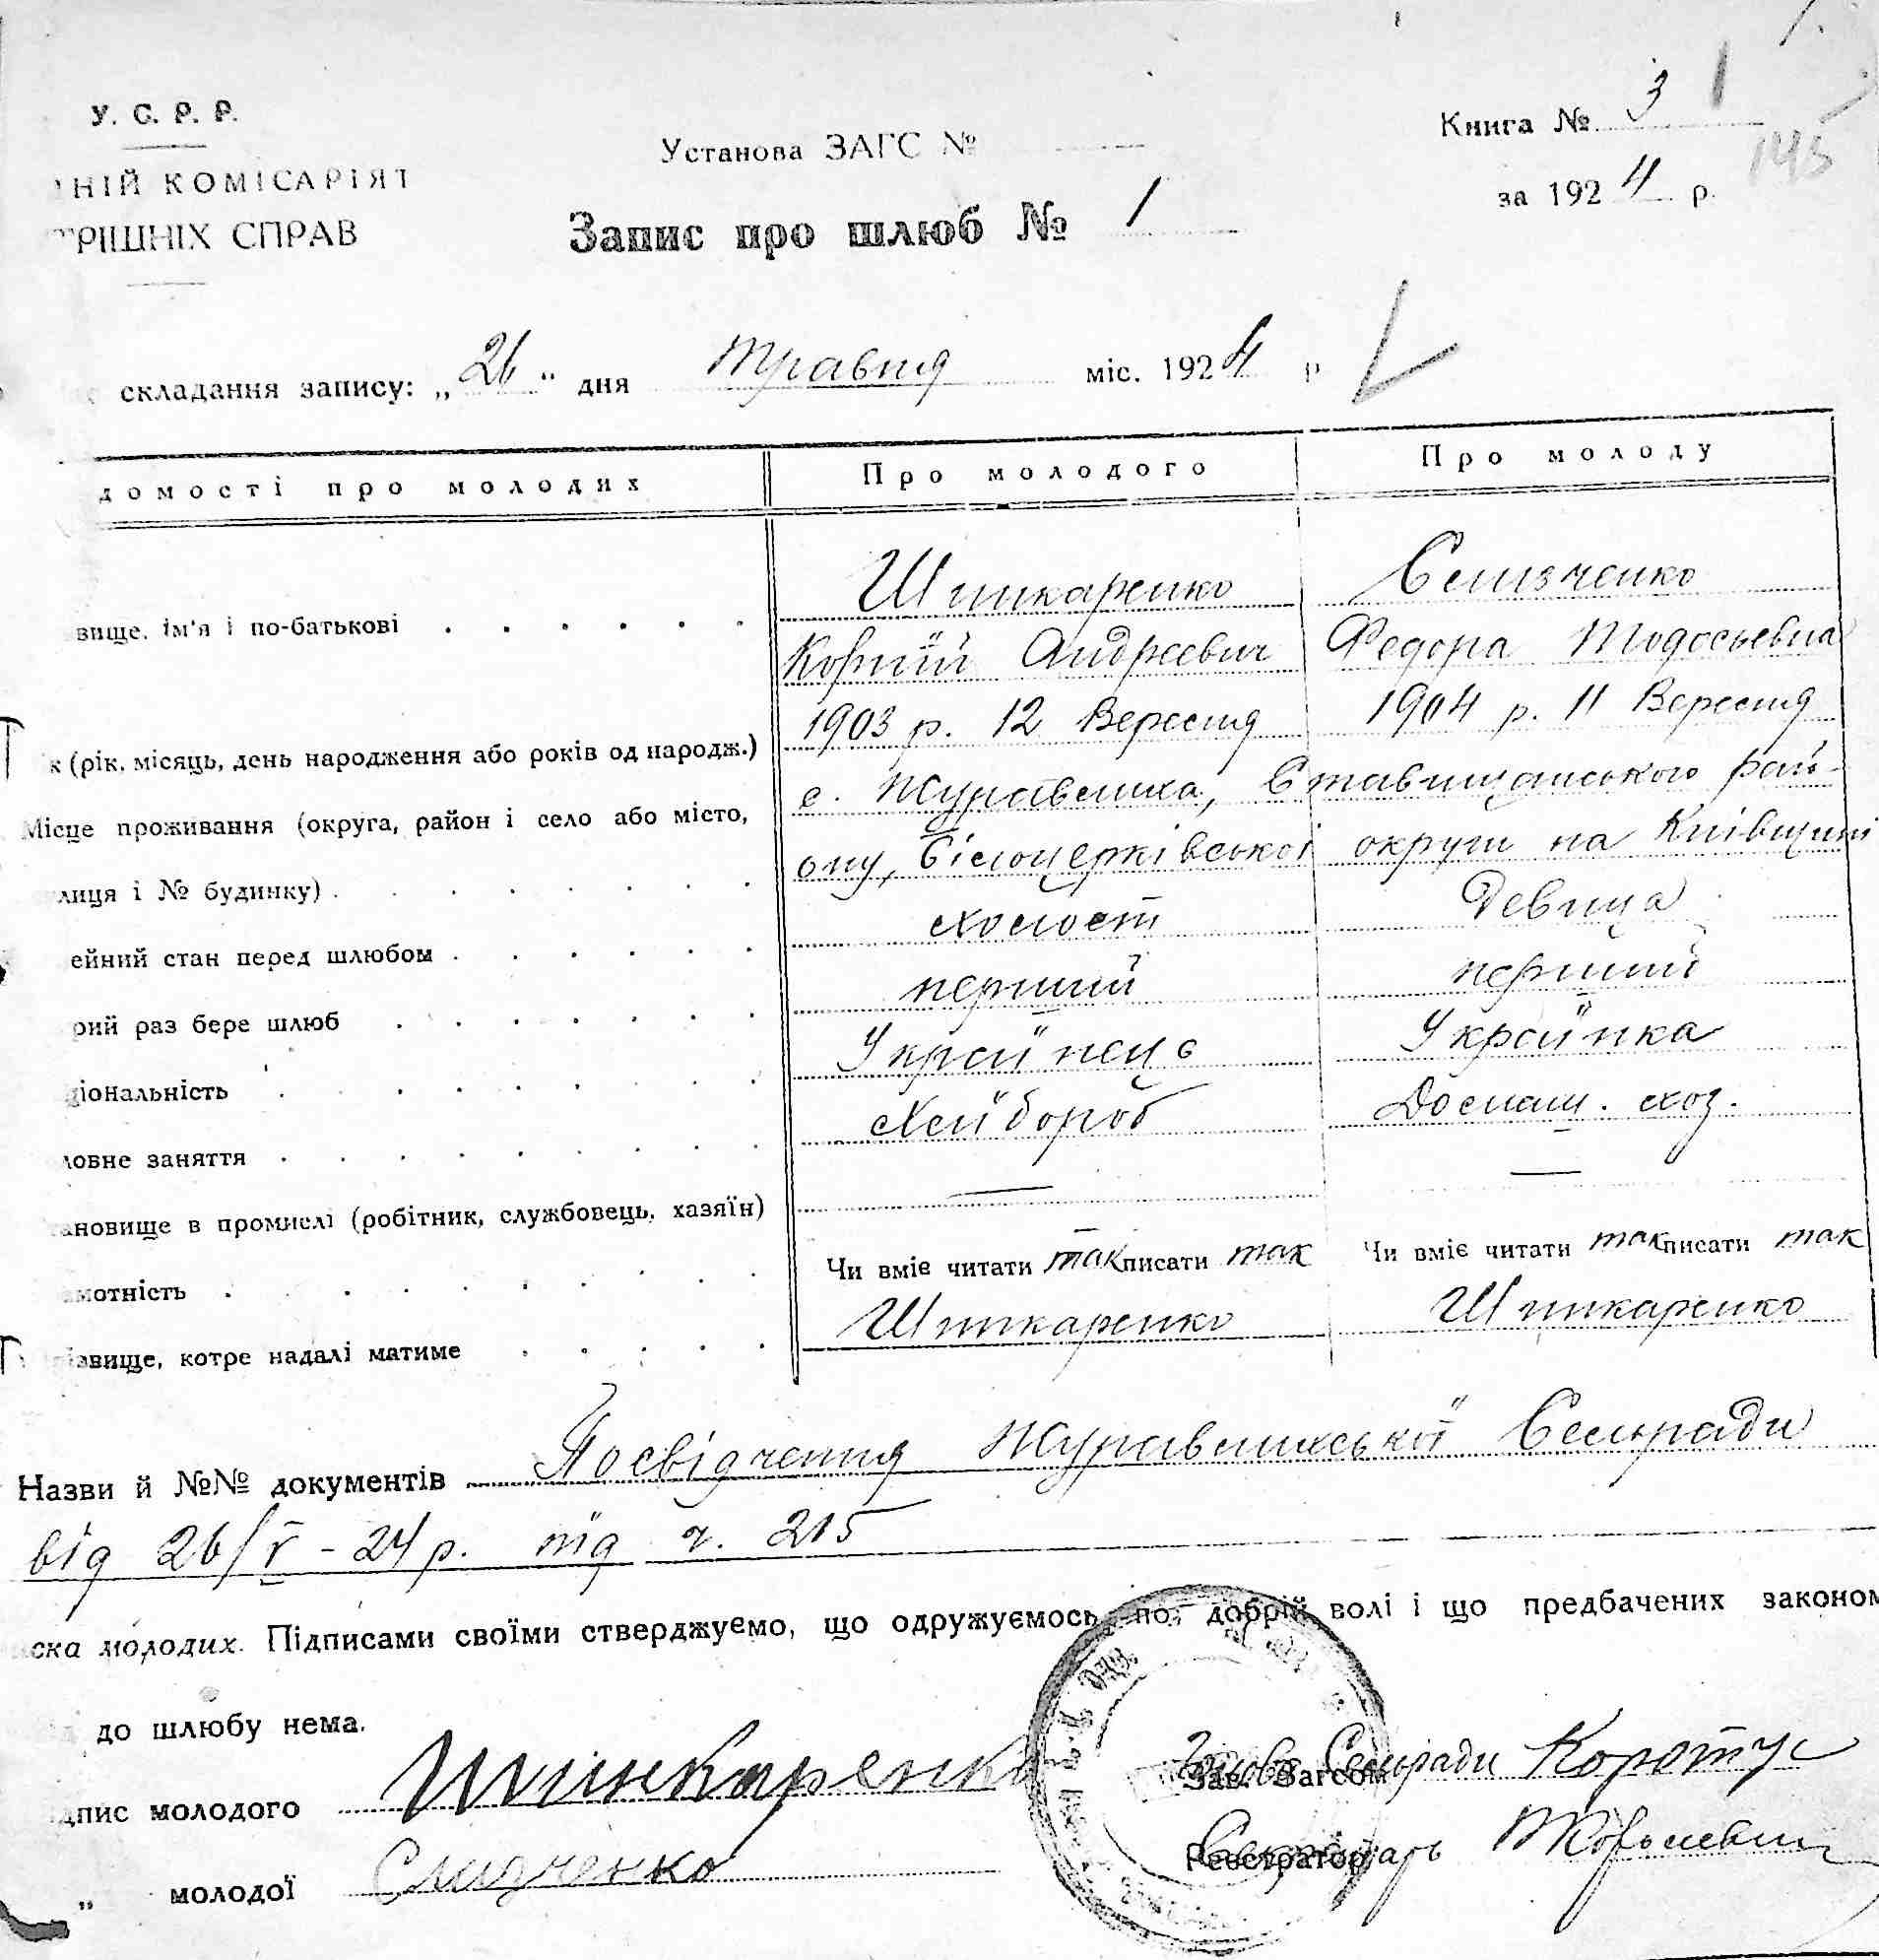 У. С. Р. Р.
НІЙ КОМІСАРІЯТ
РІШНІХ СПРАВ
Установа ЗАГС №
Запис про шлюб № 1
Книга № 3 1
145
за 1924 р.
складання запису: „26“ дня травня міс. 1924 р
домості про молодих Про молодого Про молоду
Шинкаренко
вище, ім'я і по-батькові
Корній Андреевич Федора Тодосьевна
к (рік, місяць, день народження або років од народж.) 1903 р. 12 Вересня 1904 р. 11 Вересня
Місце проживання (округа, район і село або місто, с. Журавлиха, Ставищанського рай-
лиця і № будинку) ону, Білоцерківської округи на Київщині
ейний стан перед шлюбом холост Девица
рий раз бере шлюб перший перший
ціональність Украйнець Украйнка
ловне заняття Хлібороб Домаш. хоз.
ановище в промислі (робітник, службовець, хазяїн) — —
мотність Чи вміє читати так писати так Чи вміє читати так писати так
ізвище, котре надалі матиме Шинкаренко Шинкаренко
Назви й №№ документів Посвідчення Журавлихської Сельради
від 26/V - 24 р. під ч. 215
ска молодих. Підписами своїми стверджуємо, що одружуємось по добрій волі і що предбачених законом
до шлюбу нема.
дпис молодого Шинкаренко Зав. Загсом Голова Сельради Коротус
„ молодої Реєстратор Секретарь